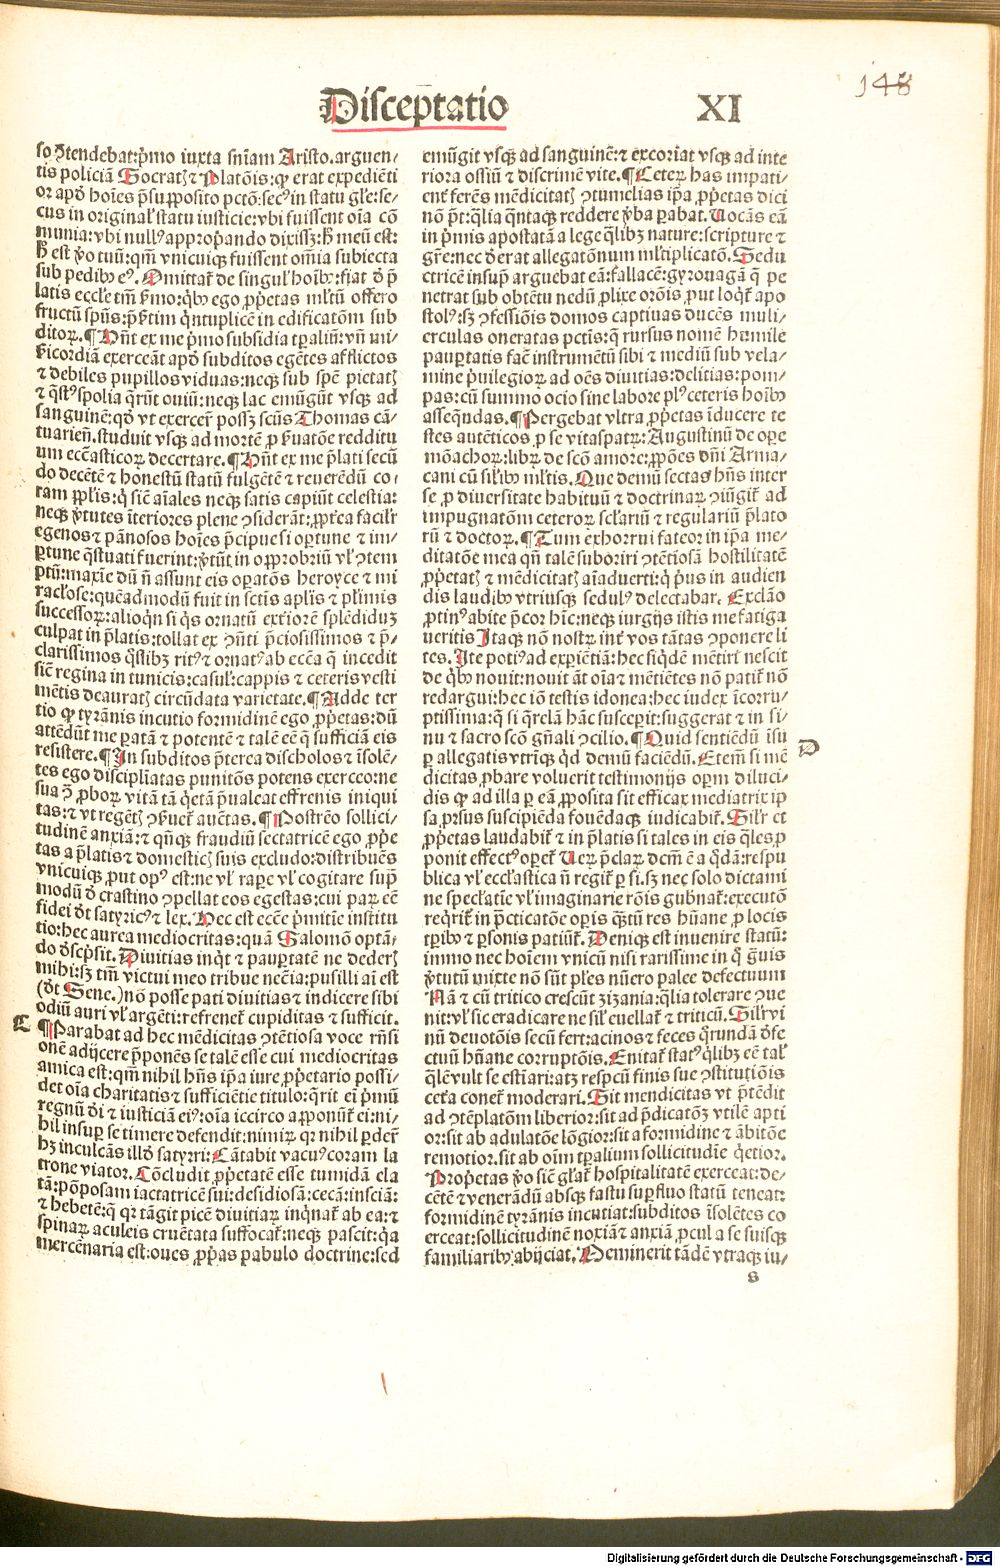 148
Disceptatio XI
so ꝯtendebat: p̄mo iuxta sn̄iam Aristo. arguen⸗
tis policiā Socratꝭ ⁊ Platōis: ꝙ erat expediēti
or apð hoīes p̄supposito pctō: secꝰ in statu gl̄e: se⸗
cus in original̓ statu iusticie: vbi fuissent oīa cō
munia: vbi nullꝰ appropāndo dixissꝫ: h̄ meū est:
h̄ est ꝟo tuū: qm̄ vnicuiqꝫ fuissent om̄ia subiecta
sub pedibꝰ eꝰ. Omittat̄ de singul̓ hoībꝰ: fiat ð p̄
latis eccl̄e tm̄ ẜmo: qͥbꝰ ego ꝓp̄etas ml̓tū offero
fructū spūs: p̄ẜtim qͥntuplicē in edificatōm sub
ditoꝝ. ¶ Hn̄t ex me p̄mo subsidia tꝑaliū: vn̄ mi⸗
ẜicordiā exerceāt apð subditos egētes afflictos
⁊ debiles pupillos viduas: neqꝫ sub spē pietatꝭ
⁊ qͥstꝰ spolia qͥrūt ouiū: neqꝫ lac emūgūt vsqꝫ ad
sanguinē: qð vt exercer̄ possꝫ scūs Thomas cā⸗
tuarien̄. studuit vsqꝫ ad mortē ꝓ ẜuatōe redditu
um ecc̄asticoꝝ decertare. ¶ Hn̄t ex me p̄lati secū
do decētē ⁊ honestū statū fulgētē ⁊ reuerēdū co⸗
ram ppl̓is: qͥ sic̄ aīales neqꝫ satis capiūt celestia:
neqꝫ ꝟtutes īteriores plene ꝯsiderāt: ꝓpt̄ea facilr̄
egenos ⁊ pānosos hoīes p̄cipue si oportune ⁊ im⸗
portune qͥstuati fuerint: ꝟtūt in opprobriū vl̓ ꝯtem
ptū: maxīe dū n̄ assunt eis oꝑatōs heroyce ⁊ mi
racl̓ose: quēadmodū fuit in sct̄is apl̓is ⁊ pl̓imis
successoꝝ: alioqͥn si qͥs ornatū ext̄iorē splēdiduꝫ
culpat in p̄latis: tollat ex ꝯn̄ti p̄ciosissimos ⁊ p̄⸗
clarissimos qͥslibꝫ ritꝰ ⁊ ornatꝰ ab ecc̄a q̄ incedit
sic̄ regina in tunicis: casul̓: cappis ⁊ ceteris vesti
mētis deauratꝭ circūdata varietate. ¶ Adde ter
tio ꝙ tyrānis incutio formidinē ego ꝓp̄etas: dū
attēdūt me ꝑatā ⁊ potentē ⁊ talē eē q̄ sufficiā eis
resistere. ¶ In subditos p̄terea discholos ⁊ īsolē⸗
tes ego discipl̓iatas punitōs potens exerceo: ne
sua ꝯ̄ ꝓboꝝ vitā tā qͥetā p̄ualeat effrenis iniqui
tas: ⁊ vt regētꝭ ꝯẜuet̄ auētas. ¶ Postrēo sollici⸗
tudinē anxiā: ⁊ qn̄qꝫ fraudiū sectatricē ego ꝓp̄e
tas a p̄latis ⁊ domesticꝭ suis excludo: distribuēs
vnicuiqꝫ ꝓut opꝰ est: ne vl̓ raꝑe vl̓ cogitare suꝑ
modū ð crastino ꝯpellat eos egestas: cui par eē
fidei ðt satyricꝰ ⁊ lex. Hec est ecc̄e p̄mitīe institu
tio: hec aurea mediocritas: quā Salomō optā⸗
do ðscp̄sit. Diuitias inqͥt ⁊ pauꝑtatē ne dederꝭ
mihi: sꝫ tm̄ victui meo tribue nec̄ia: pusilli ai est
(ðt Sene.) nō posse pati diuitias ⁊ indicere sibi
odiū auri vl̓ argēti: refrenet̄ cupiditas ⁊ sufficit.
C ¶ Parabat ad hec mēdicitas ꝯtētiosa voce rn̄si
onē adijcere p̄ponēs se talē esse cui mediocritas
amica est: qm̄ nihil hn̄s ip̄a iure ꝓp̄etario possi⸗
det oīa charitatis ⁊ sufficiētie titulo: qͥrit ei p̄mū
regnū ði ⁊ iusticiā eiꝰ: oīa iccirco apponūt̄ ei: ni⸗
hil insuꝑ se timere defendit: nimiꝝ qꝛ nihil ꝑder̄
hꝫ inculcās illð satyrri: Cātabit vacuꝰ coram la
trone viator. Cōcludit ꝓp̄etatē esse tumidā ela
tā: pōposam iactatricē sui: desidiosā: cecā: insciā:
⁊ hebetē: q̄ qꝛ tāgit picē diuitiaꝝ inqͥnat̄ ab ea: ⁊
spinaꝝ aculeis cruētata suffocat̄: neqꝫ pascit: qͥa
mercēnaria est: oues ꝓp̄as pabulo doctrine: sed
emūgit vsqꝫ ad sanguinē: ⁊ excoriat vsqꝫ ad inte
riora ossiū ⁊ discrimē vite. ¶ Ceteꝝ has impati⸗
ent̄ ferēs mēdicitatꝭ ꝯtumelias ip̄a ꝓp̄etas dici
nō p̄t: qͥlia qͥntaqꝫ reddere ꝟba parabat. Uocās eā
in p̄mis apostatā a lege qͥlibꝫ nature: scripture ⁊
gr̄e: nec ðerat allegatōnum ml̓tiplicatō. Sedu
ctricē insuꝑ arguebat eā: fallacē: gyrouagā q̄ pe
netrat sub obtētu nedū ꝓlixe orōis ꝓut loqͥt̄ apo
stolꝰ: sꝫ ꝯfessiōis domos captiuas ducēs muli⸗
erculas oneratas pctīs: q̄ rursus nomē humile
pauꝑtatis faē instrumētū sibi ⁊ mediū sub vela⸗
mine p̄uilegioꝝ ad oēs diuitias: delitias: pom⸗
pas: cū summo ocio sine labore plꝰ ceteris hoībꝰ
asseqͥndas. ¶ Pergebat vltra ꝓp̄etas īducere te
stes autēticos ꝓ se vitaspatꝝ: Augustinū de oꝑe
mōachoꝝ: libꝝ de scō amore: ꝓpōes dn̄i Arma⸗
cani cū sil̓ibꝰ ml̓tis. Que demū sectas hn̄s inter
se ꝓ diuersitate habituū ⁊ doctrinaꝝ ꝯiūgit̄ ad
impugnatōm ceteroꝝ scl̓ariū ⁊ regulariū p̄lato
rū ⁊ doctoꝝ. ¶ Tum exhorrui fateor in ip̄a me⸗
ditatōe mea qn̄ talē suboriri ꝯtētiosā hostilitatē
ꝓp̄etatꝭ ⁊ mēdicitatꝭ aīaduerti: qͥ pͥus in audien
dis laudibꝰ vtriusqꝫ sedulꝰ delectabar. Exclāo
ꝓtinꝰ abite p̄cor hīc: neqꝫ iurgijs istis me fatiga
ueritis Itaqꝫ nō nostꝝ int̄ vos tātas ꝯponere li
tes. Ite potiꝰ ad exꝑiētiā: hec siqͥdē mētiri nescit
de qͥbꝰ nouit: nouit āt oīa ⁊ mētiētes nō patit̄ nō
redargui: hec iō testis idonea: hec iudex īcorru⸗
ptissima: q̄ si qͥrelā hāc susceꝑit: suggerat ⁊ in si⸗
nu ⁊ sacro scō gn̄ali ꝯcilio. ¶ Quid sentiēdū īsu D
ꝑ allegatis vtrīqꝫ qͥd demū faciēdū. Etem̄ si mē
dicitas ꝓbare voluerit testimonijs opeꝝ diluci⸗
dis ꝙ ad illa ꝑ eā ꝓposita sit efficax mediatrix ip̄
sa ꝓrsus suscipiēda fouēdaqꝫ iudicabit̄. Silr̄ et
ꝓp̄etas laudabit̄ ⁊ in p̄latis si tales in eis qͥles ꝓ
ponit effectꝰ oꝑet̄ Ueꝝ p̄claꝝ dcm̄ ē a qͥdā: respu
blica vl̓ eccl̓astica n̄ regit̄ ꝑ si. sꝫ nec solo dictami
ne specl̓atiē vl̓ imaginarie rōis gubnat̄: executō
reqͥrit̄ in p̄cticatōe oꝑis qͥꝫtū res hūane ꝓ locis
tꝑibꝰ ⁊ ꝑsonis patiūt̄. Deniqꝫ est inuenire statū:
immo nec hoīem vnicū nisi rarissime in qͥ ḡuis
ꝟtutū mixte nō sūt pl̓es nūero palee defectuum
Nā ⁊ cū tritico crescūt zizania: qͥlia tolerare ꝯue
nit: vl̓ sic eradicare ne sil̓ euellat̄ ⁊ triticū. Silr̄ vi
nū deuotōis secū fert: acinos ⁊ feces qͥrundā ðfe
ctuū hūane corruptōis. Enitat̄ statꝰ qͥlibꝫ eē tal̓
qͥlē vult se estīari: atꝫ respcū finis sue ꝯstitutiōis
cet̄a conet̄ moderari. Sit mendicitas vt p̄tēdit
ad ꝯtēplatōm liberior: sit ad p̄dicatōꝫ vtilē apti
or: sit ab adulatōe lōgior: sit a formidine ⁊ ābitōe
remotior. sit ab oīm tꝑalium sollicitudīe qͥetior.
Propetas ꝟo sic̄ gl̓at̄ hospitalitatē exerceat: de⸗
cētē ⁊ venerādū absqꝫ fastu suꝑfluo statū teneat:
formidinē tyrānis incutiat: subditos īsolētes co
erceat: sollicitudinē noxiā ⁊ anxiā ꝓcul a se suisqꝫ
familiaribꝰ abijciat. Meminerit tādē vtraqꝫ iu⸗
s
Digitalisierung gefördert durch die Deutsche Forschungsgemeinschaft - DFG